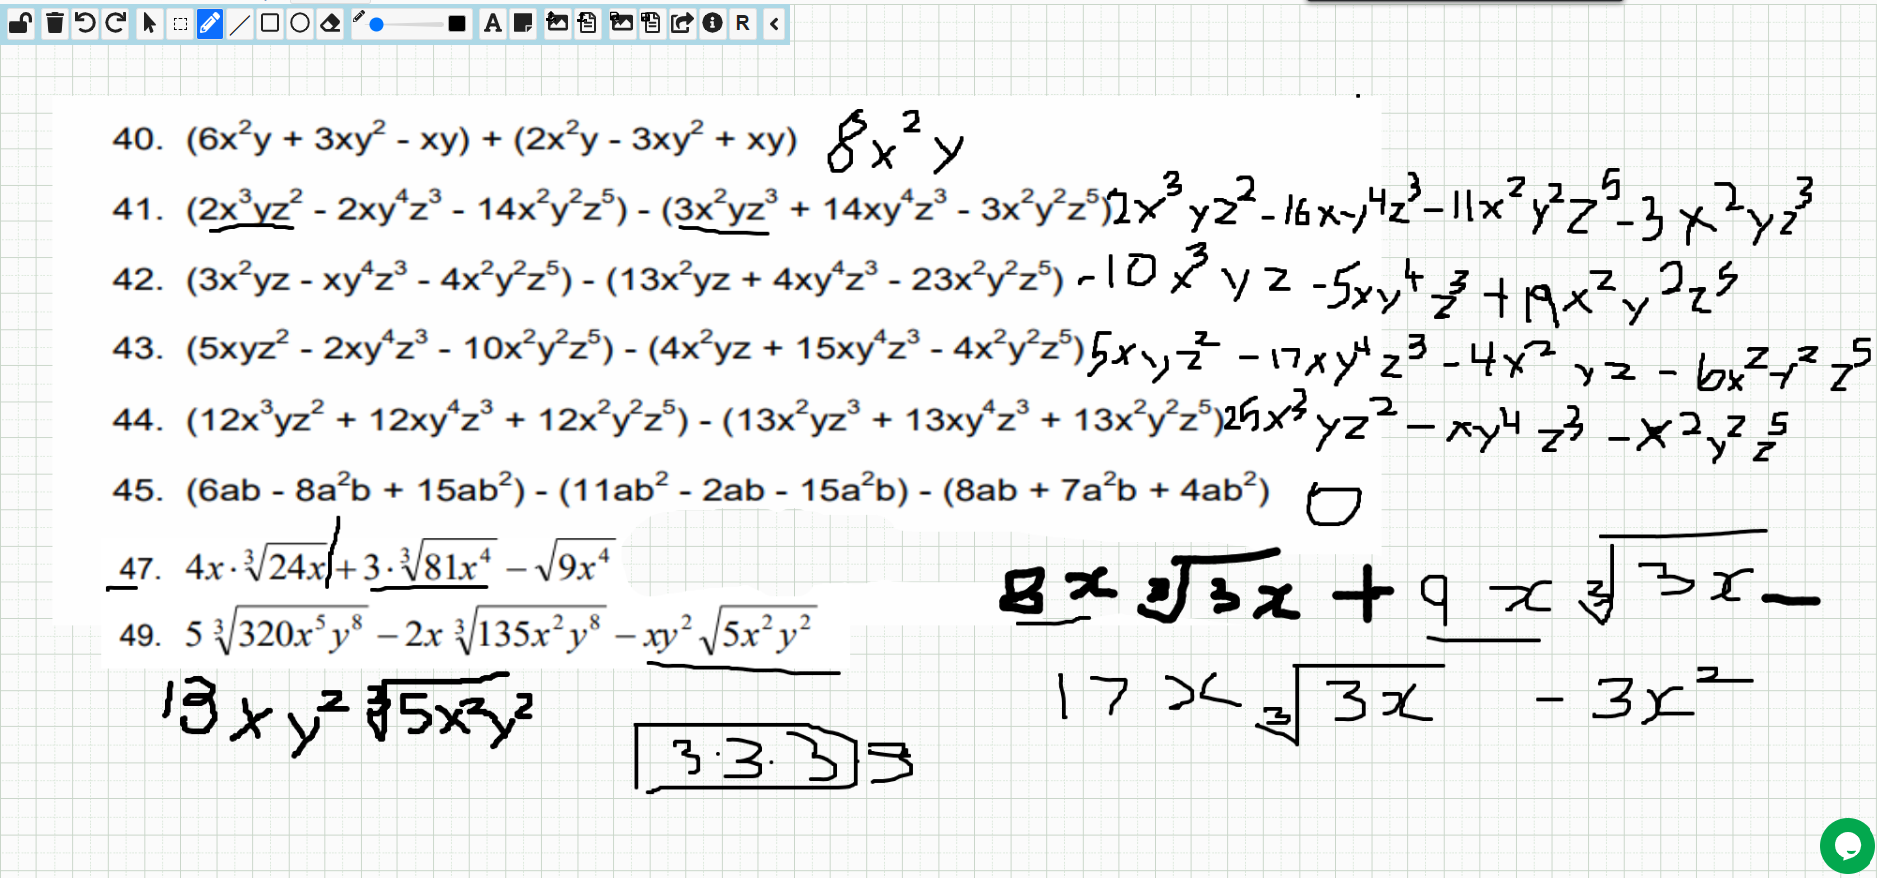 A R
40. (6x²y + 3xy² - xy) + (2x²y - 3xy² + xy) 8x²y
41. (2x³yz² - 2xy⁴z³ - 14x²y²z⁵) - (3x²yz³ + 14xy⁴z³ - 3x²y²z⁵) 2x³yz² - 16xy⁴z³ - 11x²y²z⁵ - 3x²yz³
42. (3x²yz - xy⁴z³ - 4x²y²z⁵) - (13x²yz + 4xy⁴z³ - 23x²y²z⁵) -10x³yz - 5xy⁴z³ + 19x²y²z⁵
43. (5xyz² - 2xy⁴z³ - 10x²y²z⁵) - (4x²yz + 15xy⁴z³ - 4x²y²z⁵) 5xyz² - 17xy⁴z³ - 4x²yz - 6x²y²z⁵
44. (12x³yz² + 12xy⁴z³ + 12x²y²z⁵) - (13x²yz³ + 13xy⁴z³ + 13x²y²z⁵) 25x³yz² - xy⁴z³ - x²y²z⁵
45. (6ab - 8a²b + 15ab²) - (11ab² - 2ab - 15a²b) - (8ab + 7a²b + 4ab²) 0
47. 4x · ∛24x + 3 · ∛81x⁴ − √9x⁴ 8x ∛3x + 9x ∛3x −
49. 5 ∛320x⁵y⁸ − 2x ∛135x²y⁸ − xy² √5x²y²
13xy² ∛5x²y² 17x ∛3x - 3x²
3·3·3·3